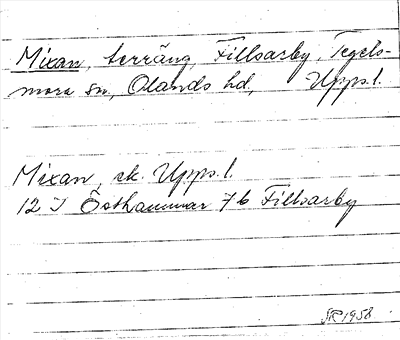 Mixan, terräng, Fillsarby, Tegels-
mora sn, Olands hd, Upps.l.
Mixan, ek. Upps.l.
12 I Östhammar 7b Fillsarby
1958